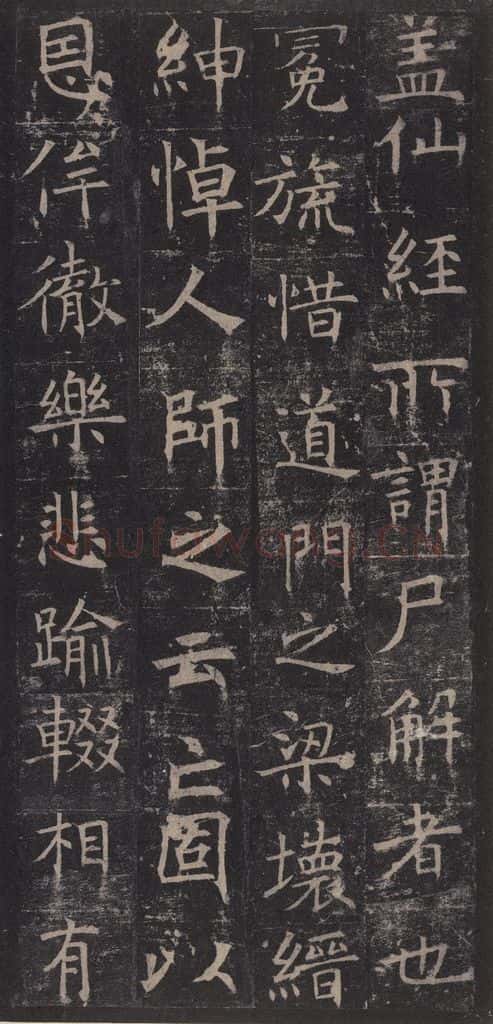 盖仙經所謂尸解者也
冕旒惜道門之梁壞縉
紳悼人師之云亡固以
恩侔徹樂悲踰輟相有
Shufawang.CN